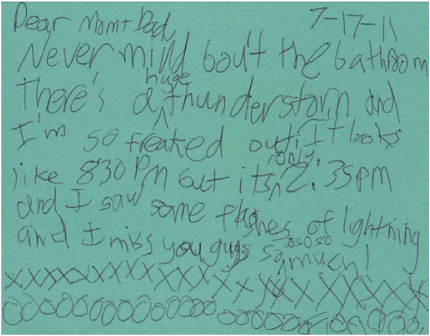 Dear Mom+Dad 7-17-11
Never mind bout the bathroom
There's a huge thunderstorm and
I'm so freaked out! It looks
like 830 PM but its only 2:35PM
and I saw some flashes of lightning
and I miss you guys so sososo much!
xxxxxxxxxxxxxxxxxxx
oooooooooooooooooooo